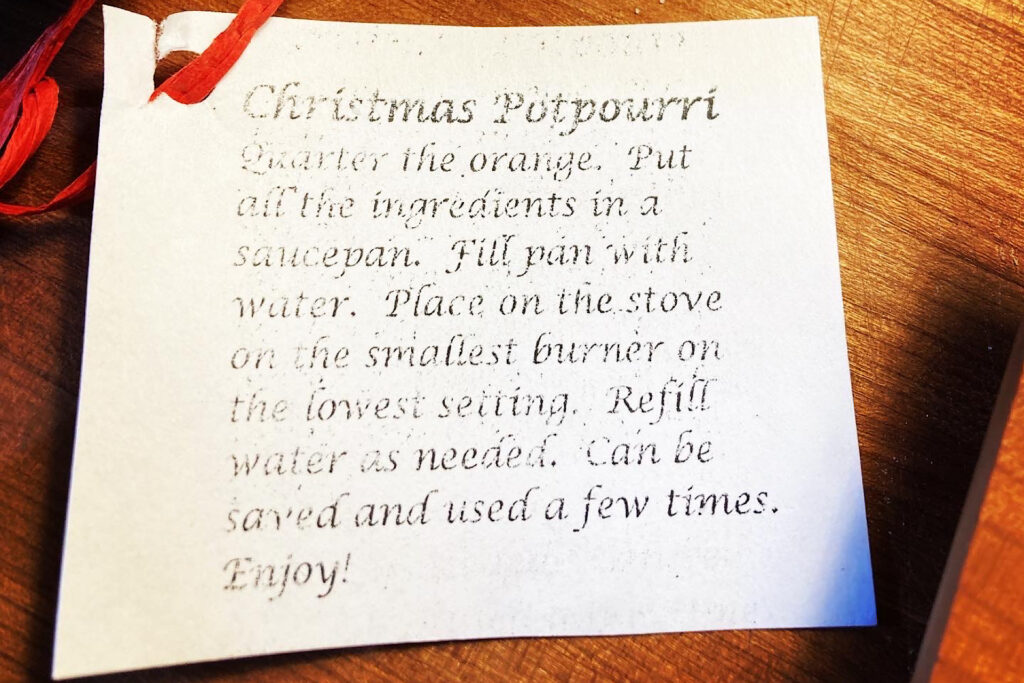 Christmas Potpourri
Quarter the orange. Put
all the ingredients in a
saucepan. Fill pan with
water. Place on the stove
on the smallest burner on
the lowest setting. Refill
water as needed. Can be
saved and used a few times.
Enjoy!